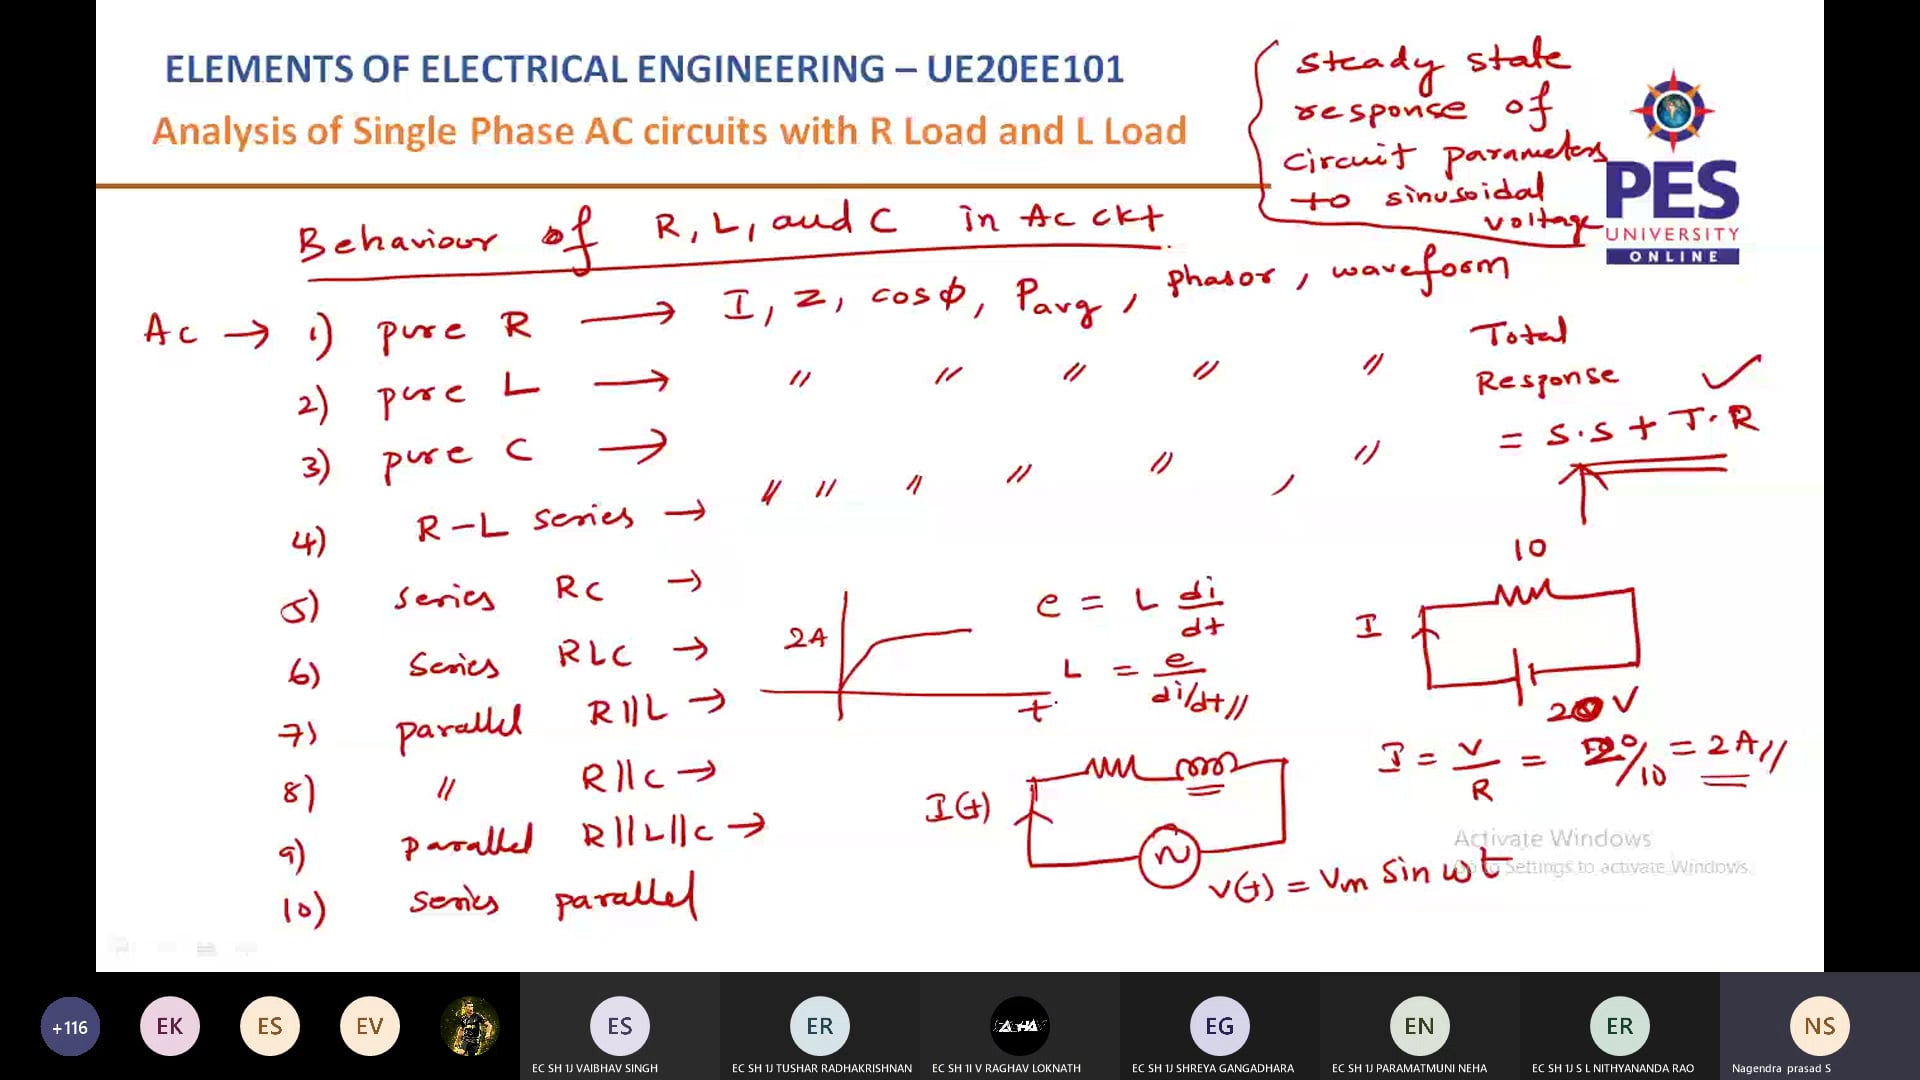 ELEMENTS OF ELECTRICAL ENGINEERING – UE20EE101
Analysis of Single Phase AC circuits with R Load and L Load
steady state
response of
circuit parameters
to sinusoidal
voltage
PES
UNIVERSITY
ONLINE
Behaviour of R, L, and C in AC ckt
AC → 1) pure R → I, Z, cosϕ, Pavg, phasor, waveform
2) pure L → " " " " "
3) pure C →
" " " " " , "
4) R-L series →
5) series RC →
6) Series RLC →
7) parallel R||L →
8) " R||C →
9) parallel R||L||C →
10) series parallel
Total
Response ✓
= S.S + T.R
2A
t
e = L di/dt
L = e/di/dt//
10
I
20V
I = V/R = 20/10 = 2A//
I(t)
v(t) = Vm sin ωt
Activate Windows
Go to Settings to activate Windows.
+116
EK
ES
EV
ES
ER
EG
EN
ER
NS
EC SH 1J VAIBHAV SINGH
EC SH 1J TUSHAR RADHAKRISHNAN
EC SH 1I V RAGHAV LOKNATH
EC SH 1J SHREYA GANGADHARA
EC SH 1J PARAMATMUNI NEHA
EC SH 1J S L NITHYANANDA RAO
Nagendra prasad S